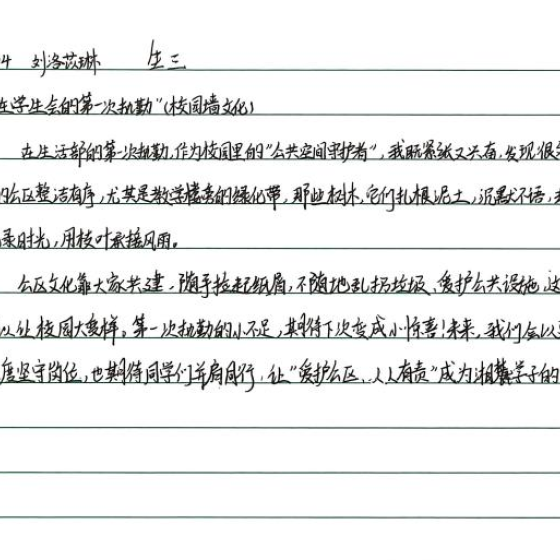 4 刘洛苡琳 生三
在学生会的第一次执勤"(校园墙文化)
在生活部的第一次执勤,作为校园里的"公共空间守护者",我既紧张又兴奋,发现很多
的公区整洁有序,尤其是教学楼旁的绿化带,那些树木,它们扎根泥土,沉默不语,
录时光,用枝叶承接风雨。
公区文化靠大家共建,随手捡起纸屑,不随地乱扔垃圾、爱护公共设施,这
以让校园大变样。第一次执勤的小不足,期待下次变成小惊喜!未来,我们会以
度坚守岗位,也期待同学们并肩同行,让"爱护公区,人人有责"成为湘麓学子的